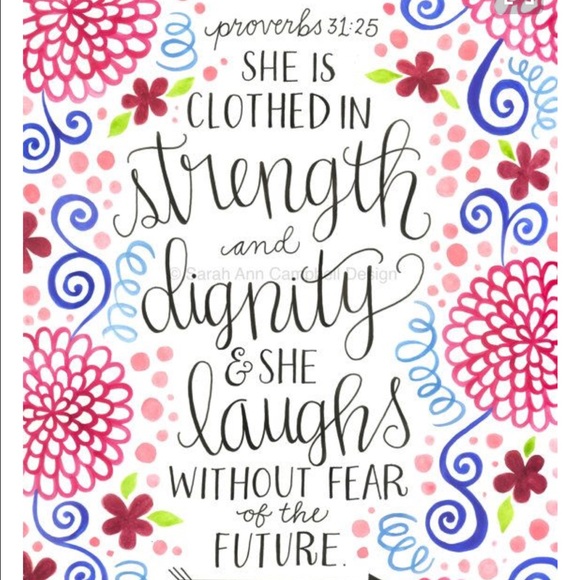 proverbs 31:25
SHE IS
CLOTHED IN
strength
and
© Sarah Ann Campbell Design
dignity
& SHE
laughs
WITHOUT FEAR
of the
FUTURE.